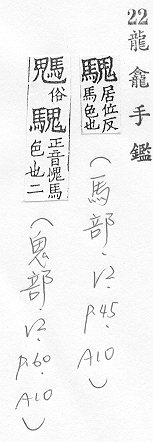 22
龍龕手鑑
騩居位反馬色也
(馬部.V2.P.45.A10)
䰨俗騩正音愧馬色也二
(鬼部.V2.P.60.A10)